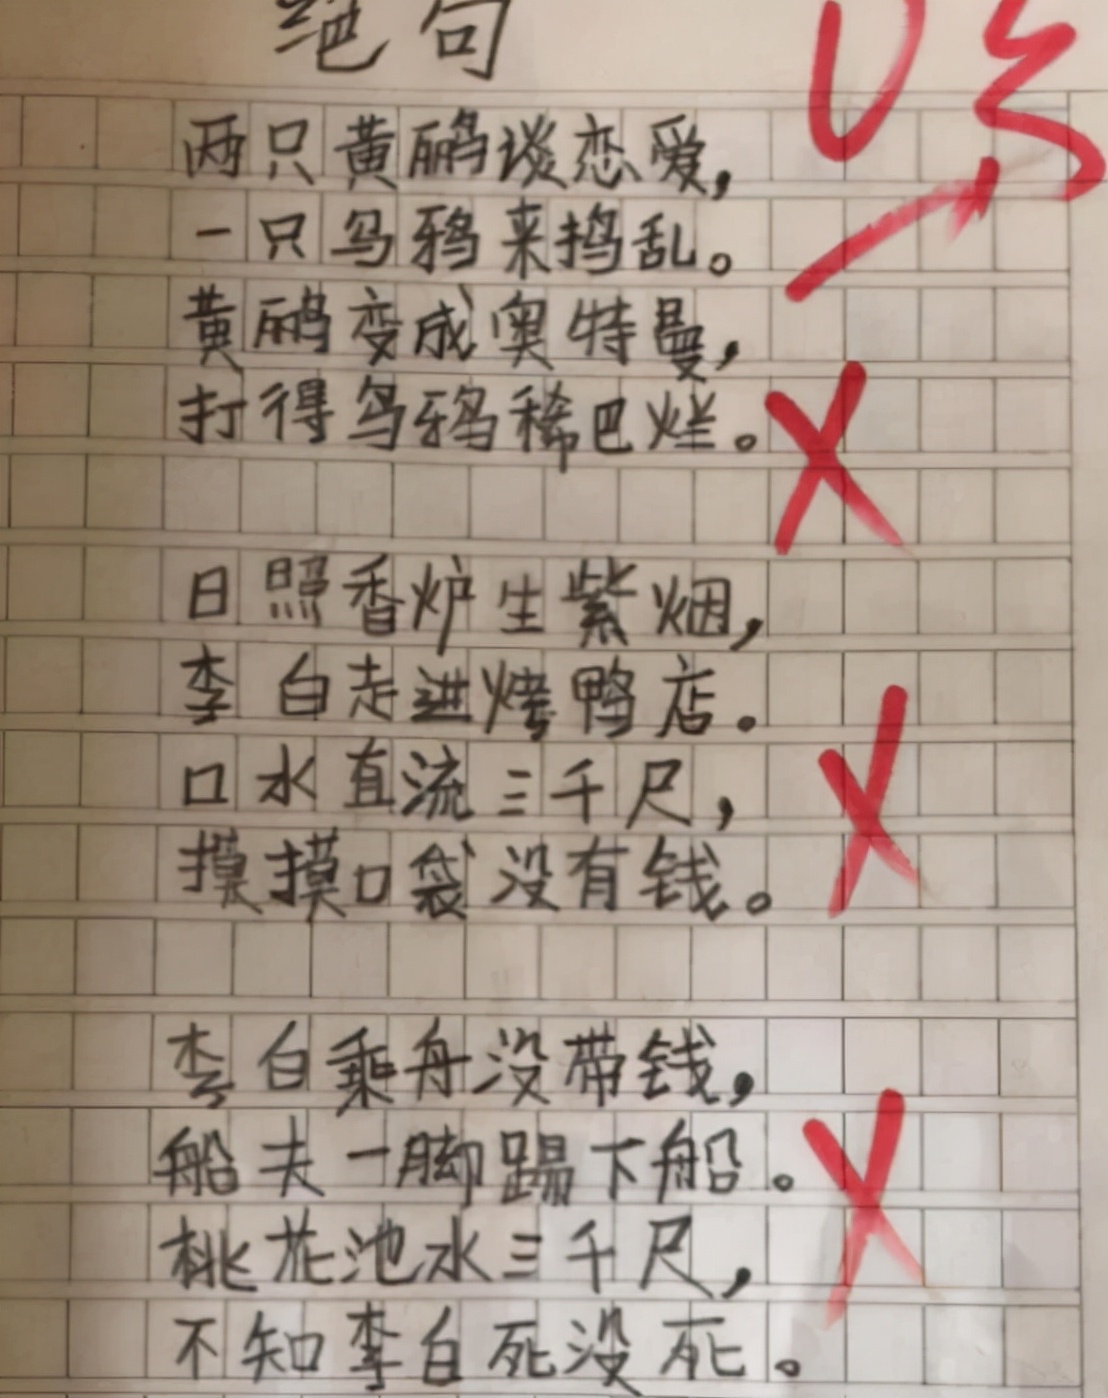 绝句
两只黄鹂谈恋爱，
一只乌鸦来捣乱。
黄鹂变成奥特曼，
打得乌鸦稀巴烂。
日照香炉生紫烟，
李白走进烤鸭店。
口水直流三千尺，
摸摸口袋没有钱。
李白乘舟没带钱，
船夫一脚踢下船。
桃花池水三千尺，
不知李白死没死。